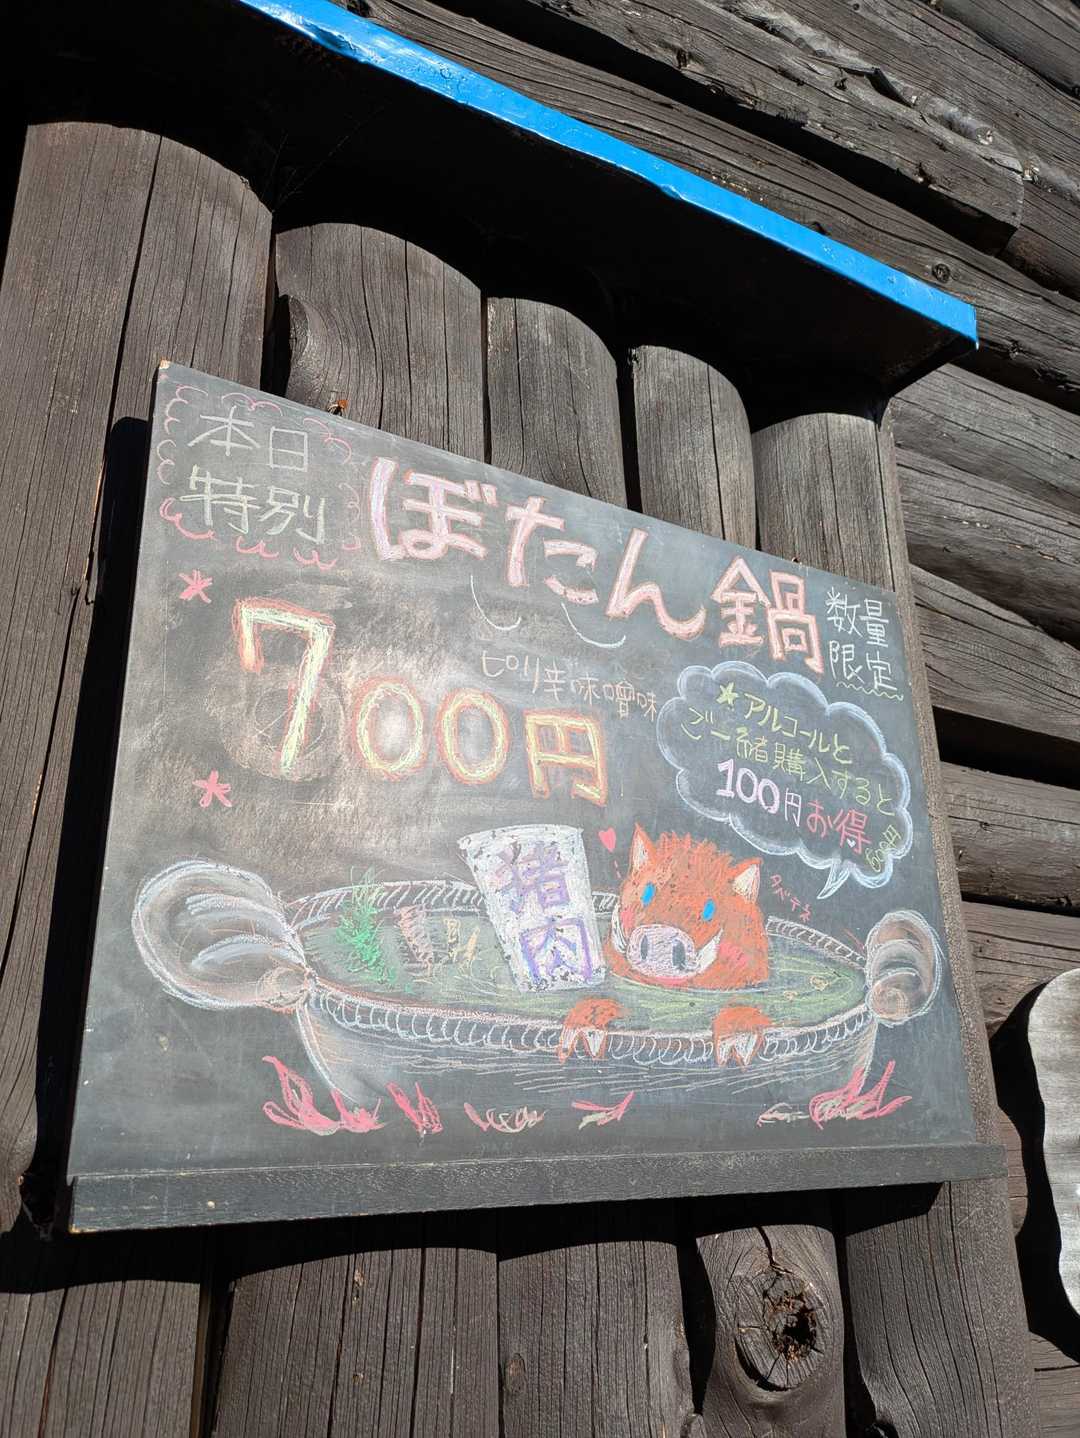 本日
特別
ぼたん鍋
数量
限定
ピリ辛味噌味
700円
★アルコールと
ご一緒購入すると
100円お得
600円
猪
肉
タベテネ